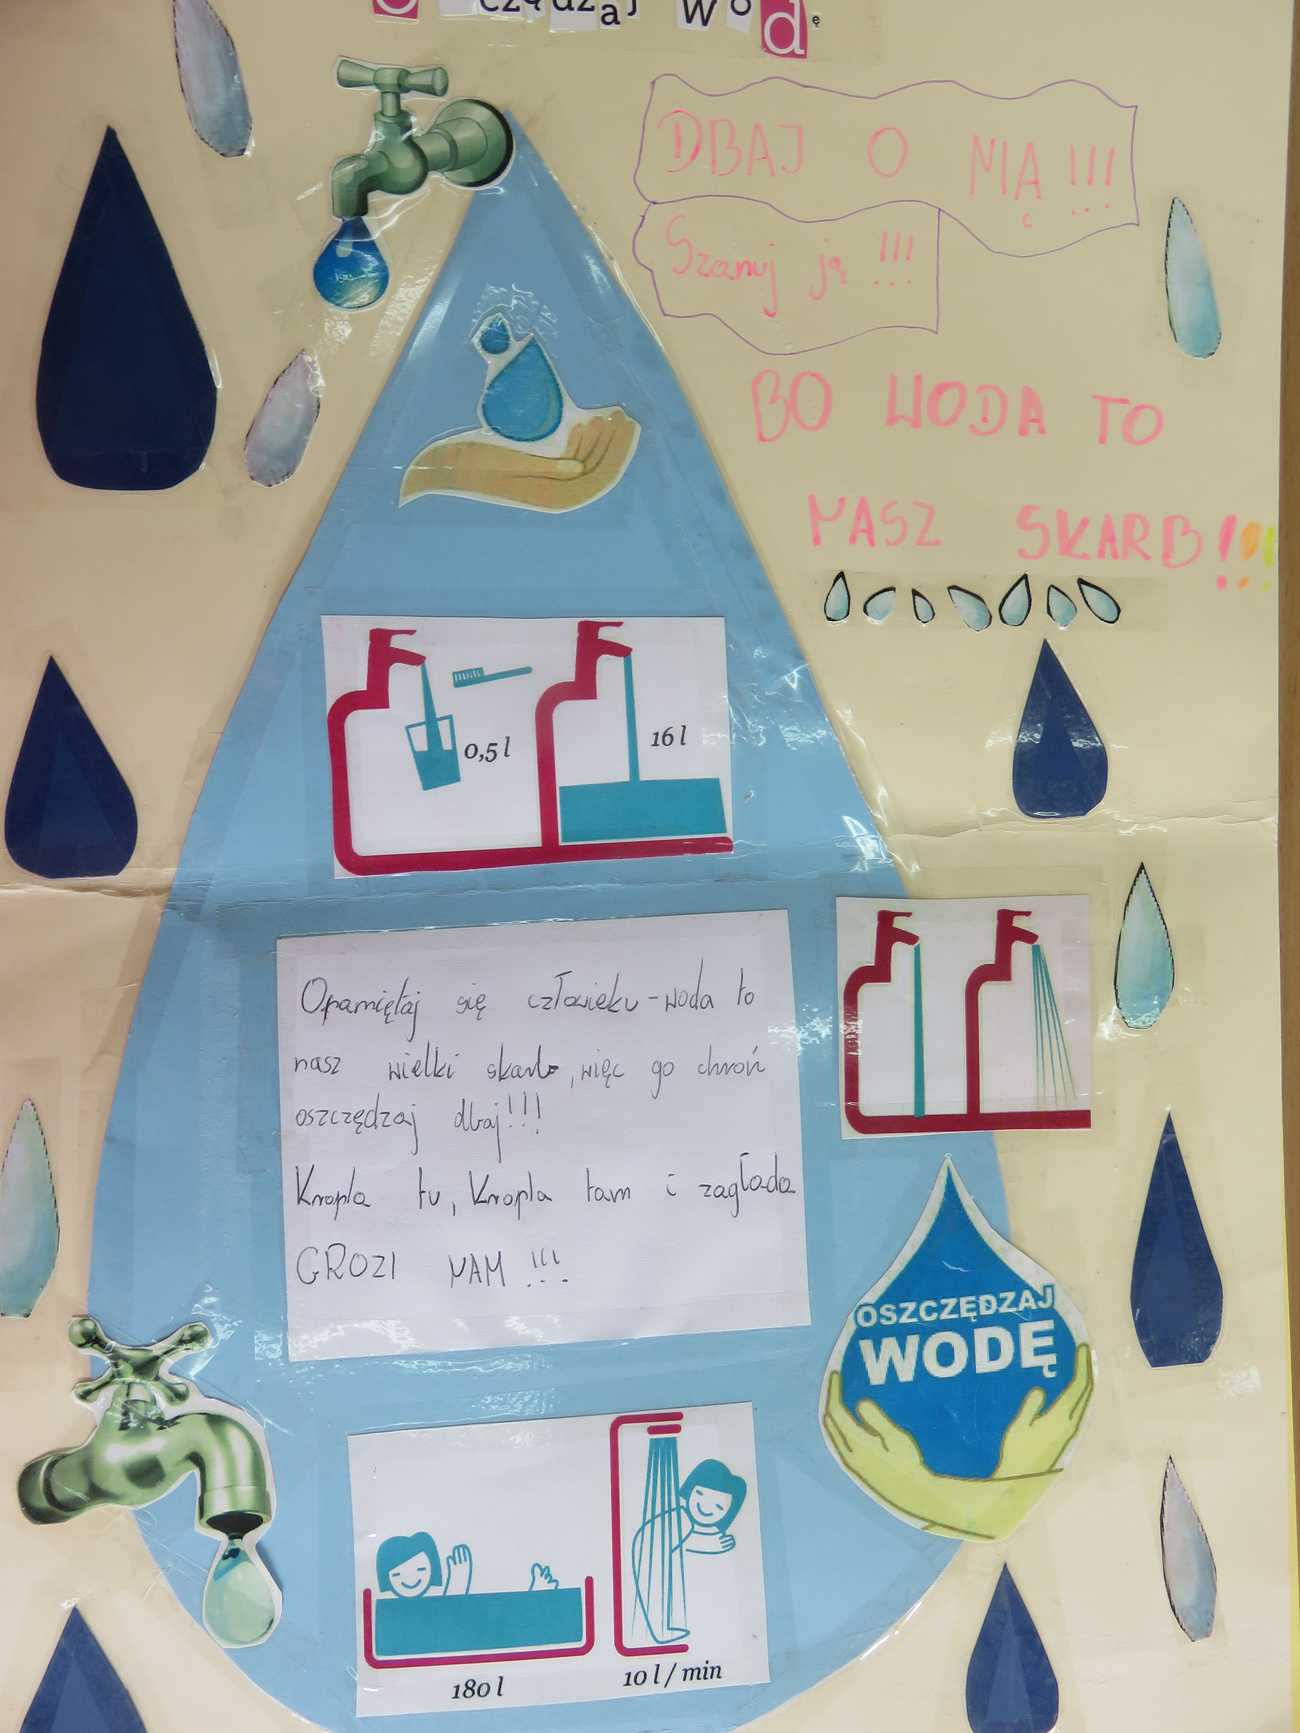 Oszczędzaj wodę
DBAJ O NIĄ !!!
Szanuj ją !!!
BO WODA TO
NASZ SKARB!!!
0,5 l
16 l
Opamiętaj się człowieku - woda to
nasz wielki skarb, więc go chroń
oszczędzaj dbaj!!!
Kropla tu, Kropla tam i zagłada
GROZI NAM !!!
OSZCZĘDZAJ
WODĘ
180 l
10 l / min